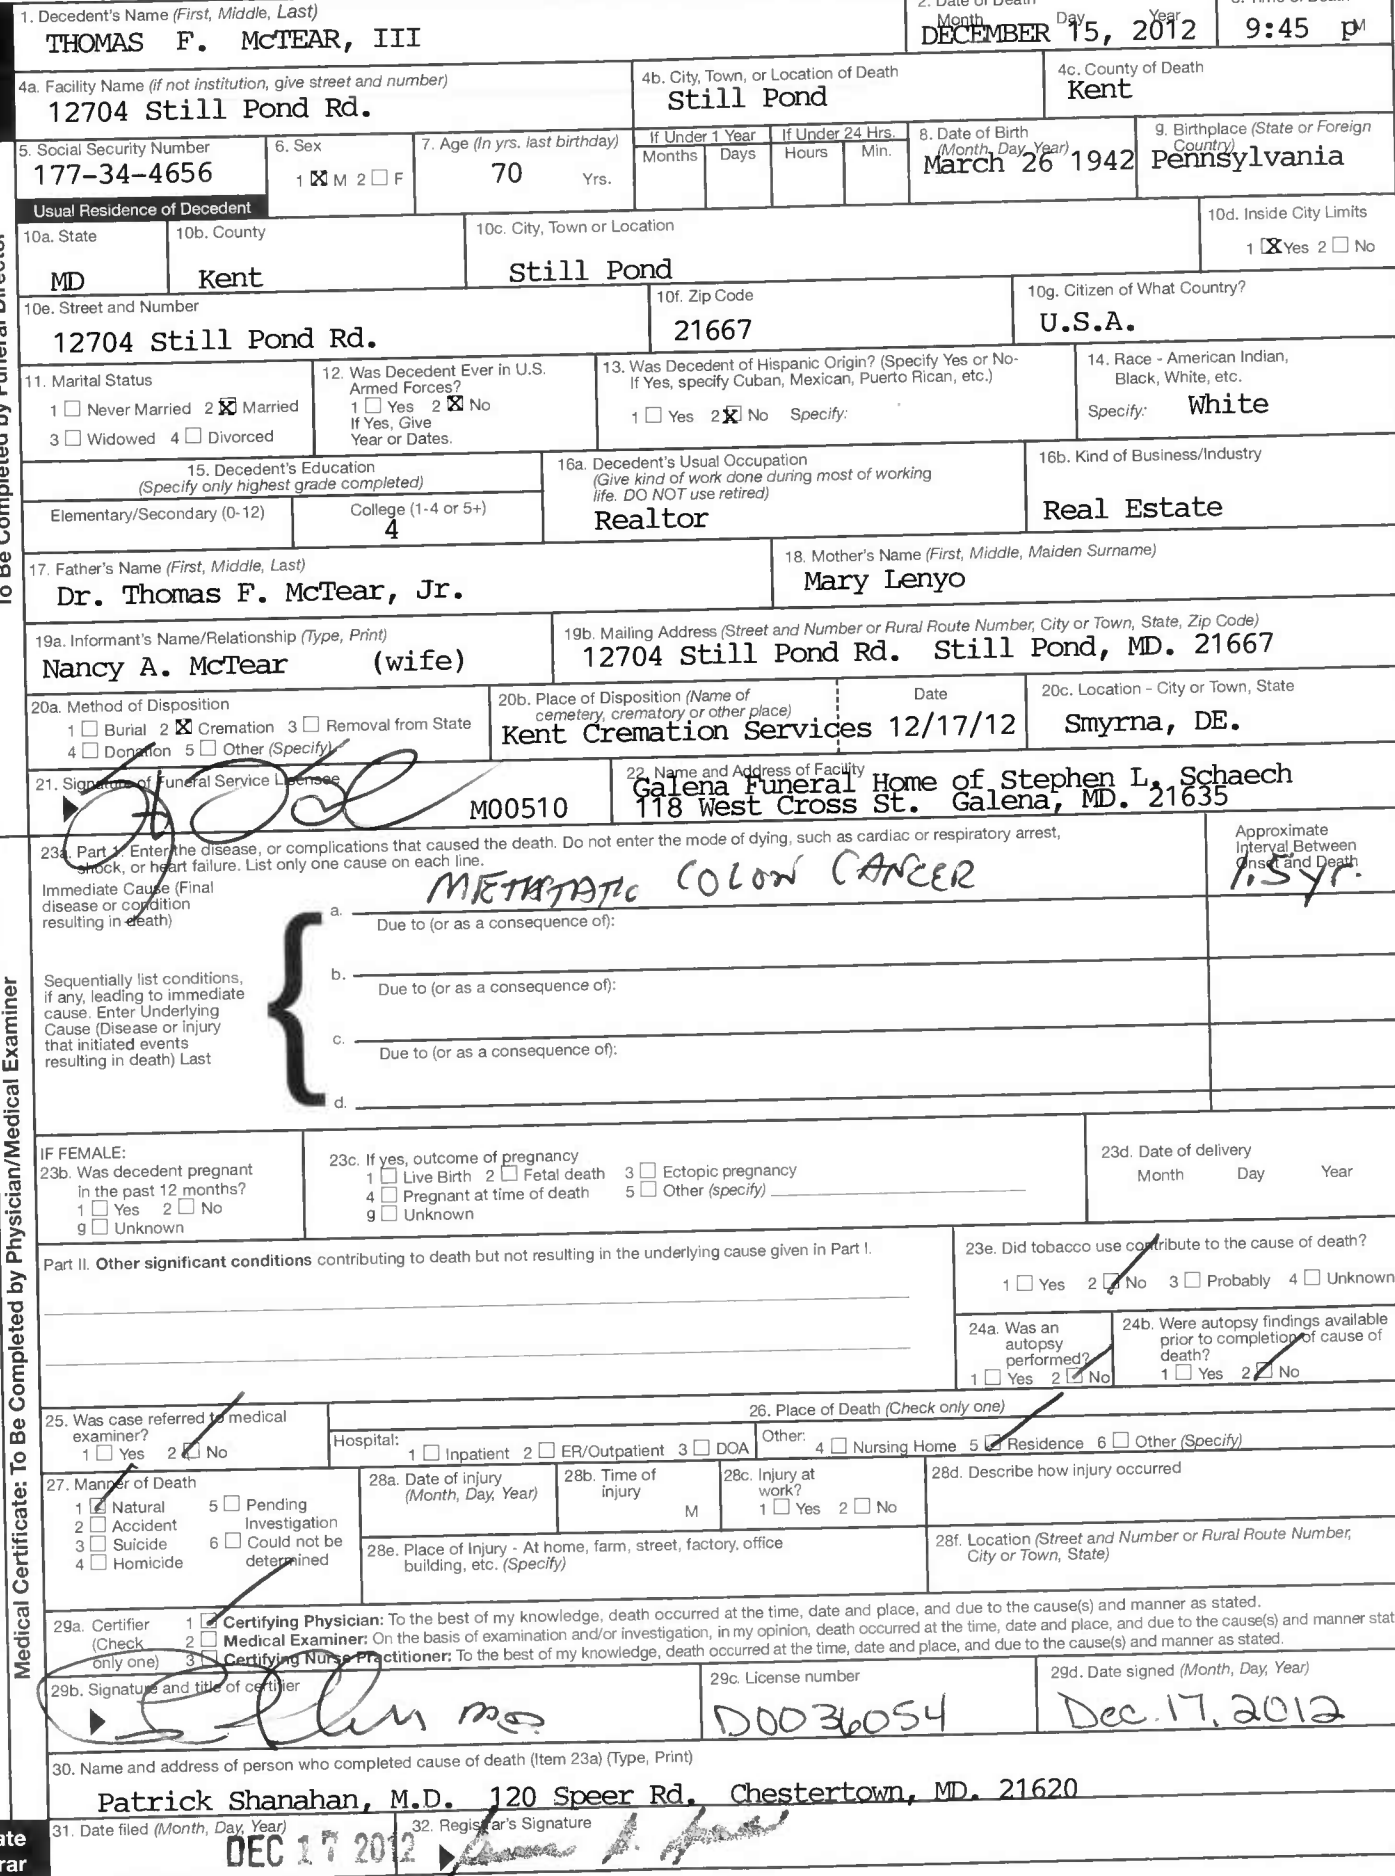 1. Decedent's Name (First, Middle, Last)
THOMAS F. McTEAR, III
2. Date of Death
Month Day Year
DECEMBER 15, 2012
9:45 PM
4a. Facility Name (if not institution, give street and number)
12704 Still Pond Rd.
4b. City, Town, or Location of Death
Still Pond
4c. County of Death
Kent
5. Social Security Number
177-34-4656
6. Sex
1 X M 2 ☐ F
7. Age (In yrs. last birthday)
70 Yrs.
If Under 1 Year
Months Days
If Under 24 Hrs.
Hours Min.
8. Date of Birth
(Month, Day, Year)
March 26 1942
9. Birthplace (State or Foreign
Country)
Pennsylvania
Usual Residence of Decedent
10a. State
MD
10b. County
Kent
10c. City, Town or Location
Still Pond
10d. Inside City Limits
1 X Yes 2 ☐ No
10e. Street and Number
12704 Still Pond Rd.
10f. Zip Code
21667
10g. Citizen of What Country?
U.S.A.
11. Marital Status
1 ☐ Never Married 2 X Married
3 ☐ Widowed 4 ☐ Divorced
12. Was Decedent Ever in U.S.
Armed Forces?
1 ☐ Yes 2 X No
If Yes, Give
Year or Dates.
13. Was Decedent of Hispanic Origin? (Specify Yes or No-
If Yes, specify Cuban, Mexican, Puerto Rican, etc.)
1 ☐ Yes 2 X No Specify:
14. Race - American Indian,
Black, White, etc.
Specify: White
15. Decedent's Education
(Specify only highest grade completed)
Elementary/Secondary (0-12)
College (1-4 or 5+)
4
16a. Decedent's Usual Occupation
(Give kind of work done during most of working
life. DO NOT use retired)
Realtor
16b. Kind of Business/Industry
Real Estate
17. Father's Name (First, Middle, Last)
Dr. Thomas F. McTear, Jr.
18. Mother's Name (First, Middle, Maiden Surname)
Mary Lenyo
19a. Informant's Name/Relationship (Type, Print)
Nancy A. McTear (wife)
19b. Mailing Address (Street and Number or Rural Route Number, City or Town, State, Zip Code)
12704 Still Pond Rd. Still Pond, MD. 21667
20a. Method of Disposition
1 ☐ Burial 2 X Cremation 3 ☐ Removal from State
4 ☐ Donation 5 ☐ Other (Specify)
20b. Place of Disposition (Name of
cemetery, crematory or other place)
Kent Cremation Services
Date
12/17/12
20c. Location - City or Town, State
Smyrna, DE.
21. Signature of Funeral Service Licensee
M00510
22. Name and Address of Facility
Galena Funeral Home of Stephen L. Schaech
118 West Cross St. Galena, MD. 21635
23a. Part 1. Enter the disease, or complications that caused the death. Do not enter the mode of dying, such as cardiac or respiratory arrest,
shock, or heart failure. List only one cause on each line.
Approximate
Interval Between
Onset and Death
Immediate Cause (Final
disease or condition
resulting in death)
a. METASTATIC COLON CANCER
1.5 yr.
Due to (or as a consequence of):
Sequentially list conditions,
if any, leading to immediate
cause. Enter Underlying
Cause (Disease or injury
that initiated events
resulting in death) Last
b.
Due to (or as a consequence of):
c.
Due to (or as a consequence of):
d.
IF FEMALE:
23b. Was decedent pregnant
in the past 12 months?
1 ☐ Yes 2 ☐ No
9 ☐ Unknown
23c. If yes, outcome of pregnancy
1 ☐ Live Birth 2 ☐ Fetal death 3 ☐ Ectopic pregnancy
4 ☐ Pregnant at time of death 5 ☐ Other (specify)
9 ☐ Unknown
23d. Date of delivery
Month Day Year
Part II. Other significant conditions contributing to death but not resulting in the underlying cause given in Part I.
23e. Did tobacco use contribute to the cause of death?
1 ☐ Yes 2 ☑ No 3 ☐ Probably 4 ☐ Unknown
24a. Was an
autopsy
performed?
1 ☐ Yes 2 ☑ No
24b. Were autopsy findings available
prior to completion of cause of
death?
1 ☐ Yes 2 ☑ No
25. Was case referred to medical
examiner?
1 ☐ Yes 2 ☑ No
26. Place of Death (Check only one)
Hospital: 1 ☐ Inpatient 2 ☐ ER/Outpatient 3 ☐ DOA
Other: 4 ☐ Nursing Home 5 ☑ Residence 6 ☐ Other (Specify)
27. Manner of Death
1 ☑ Natural 5 ☐ Pending
2 ☐ Accident Investigation
3 ☐ Suicide 6 ☐ Could not be
4 ☐ Homicide determined
28a. Date of injury
(Month, Day, Year)
28b. Time of
injury
M
28c. Injury at
work?
1 ☐ Yes 2 ☐ No
28d. Describe how injury occurred
28e. Place of Injury - At home, farm, street, factory, office
building, etc. (Specify)
28f. Location (Street and Number or Rural Route Number,
City or Town, State)
29a. Certifier
(Check
only one)
1 ☑ Certifying Physician: To the best of my knowledge, death occurred at the time, date and place, and due to the cause(s) and manner as stated.
2 ☐ Medical Examiner: On the basis of examination and/or investigation, in my opinion, death occurred at the time, date and place, and due to the cause(s) and manner stat
3 ☐ Certifying Nurse Practitioner: To the best of my knowledge, death occurred at the time, date and place, and due to the cause(s) and manner as stated.
29b. Signature and title of certifier
29c. License number
D0036054
29d. Date signed (Month, Day, Year)
Dec. 17, 2012
30. Name and address of person who completed cause of death (Item 23a) (Type, Print)
Patrick Shanahan, M.D. 120 Speer Rd. Chestertown, MD. 21620
31. Date filed (Month, Day, Year)
DEC 17 2012
32. Registrar's Signature
To Be Completed by Funeral Director
Medical Certificate: To Be Completed by Physician/Medical Examiner